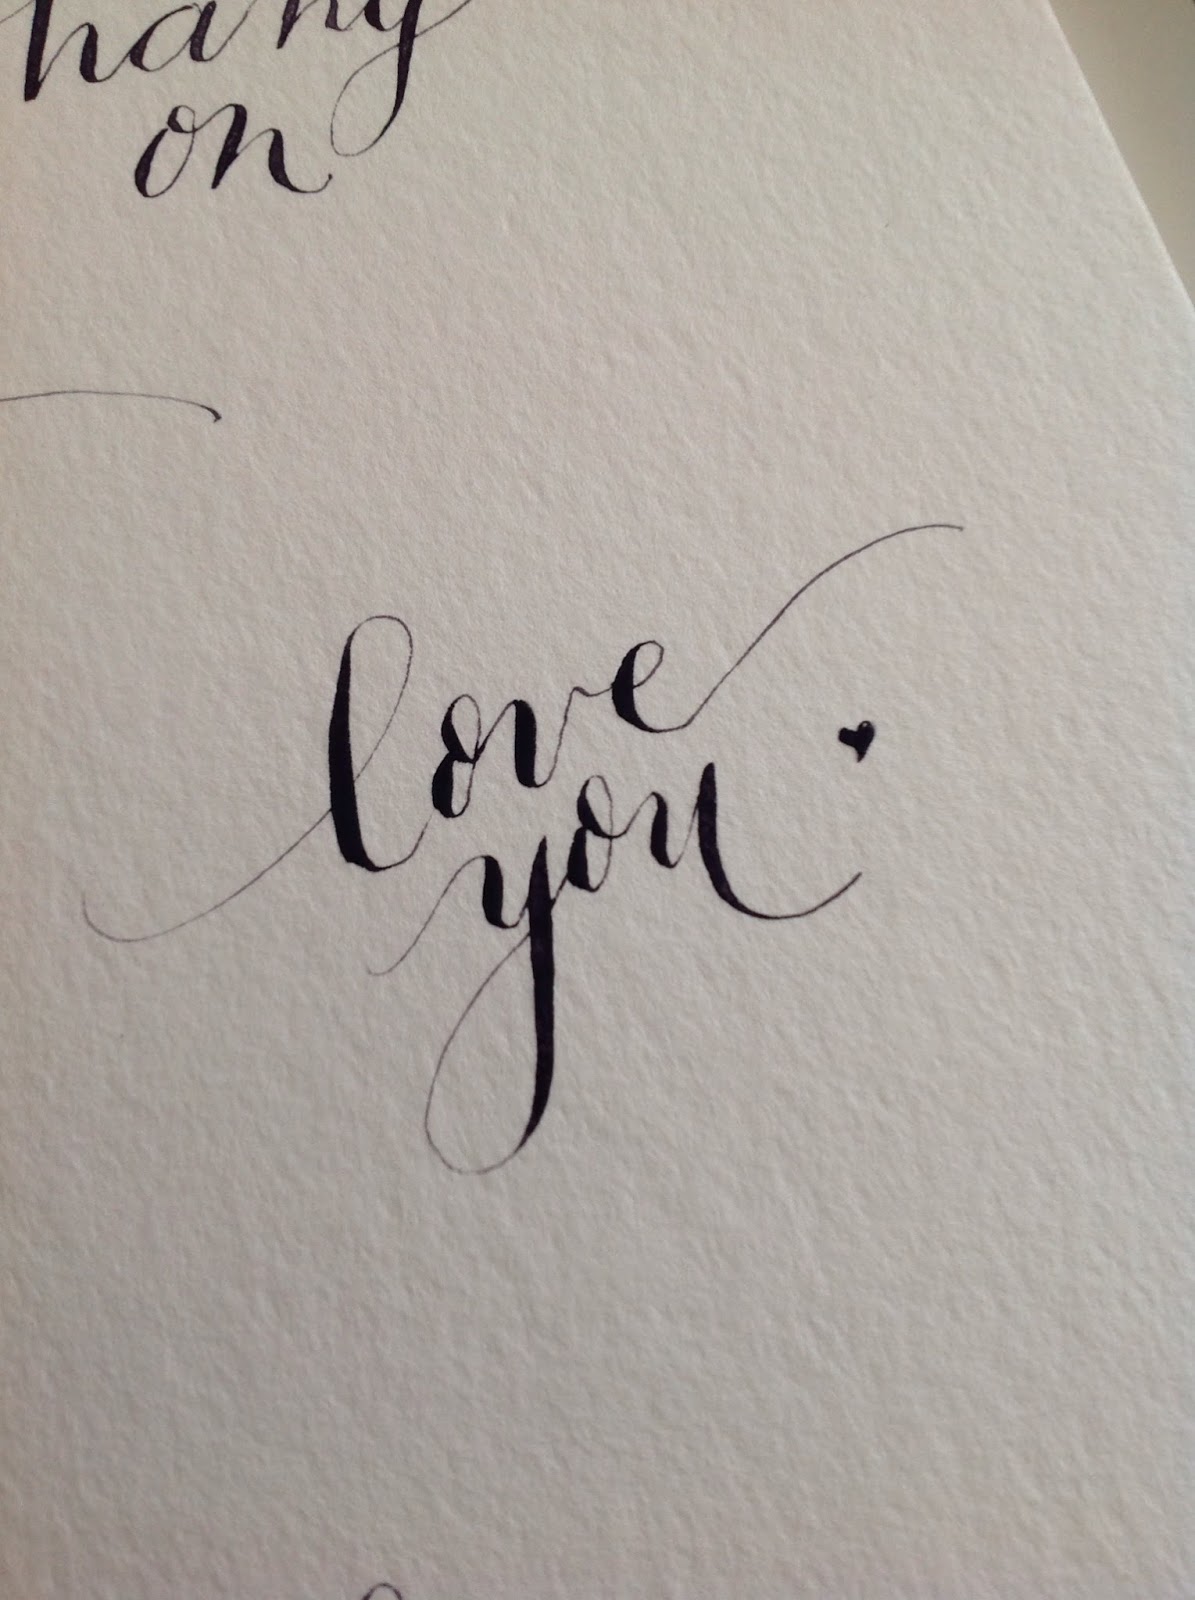 hang
on
love
you